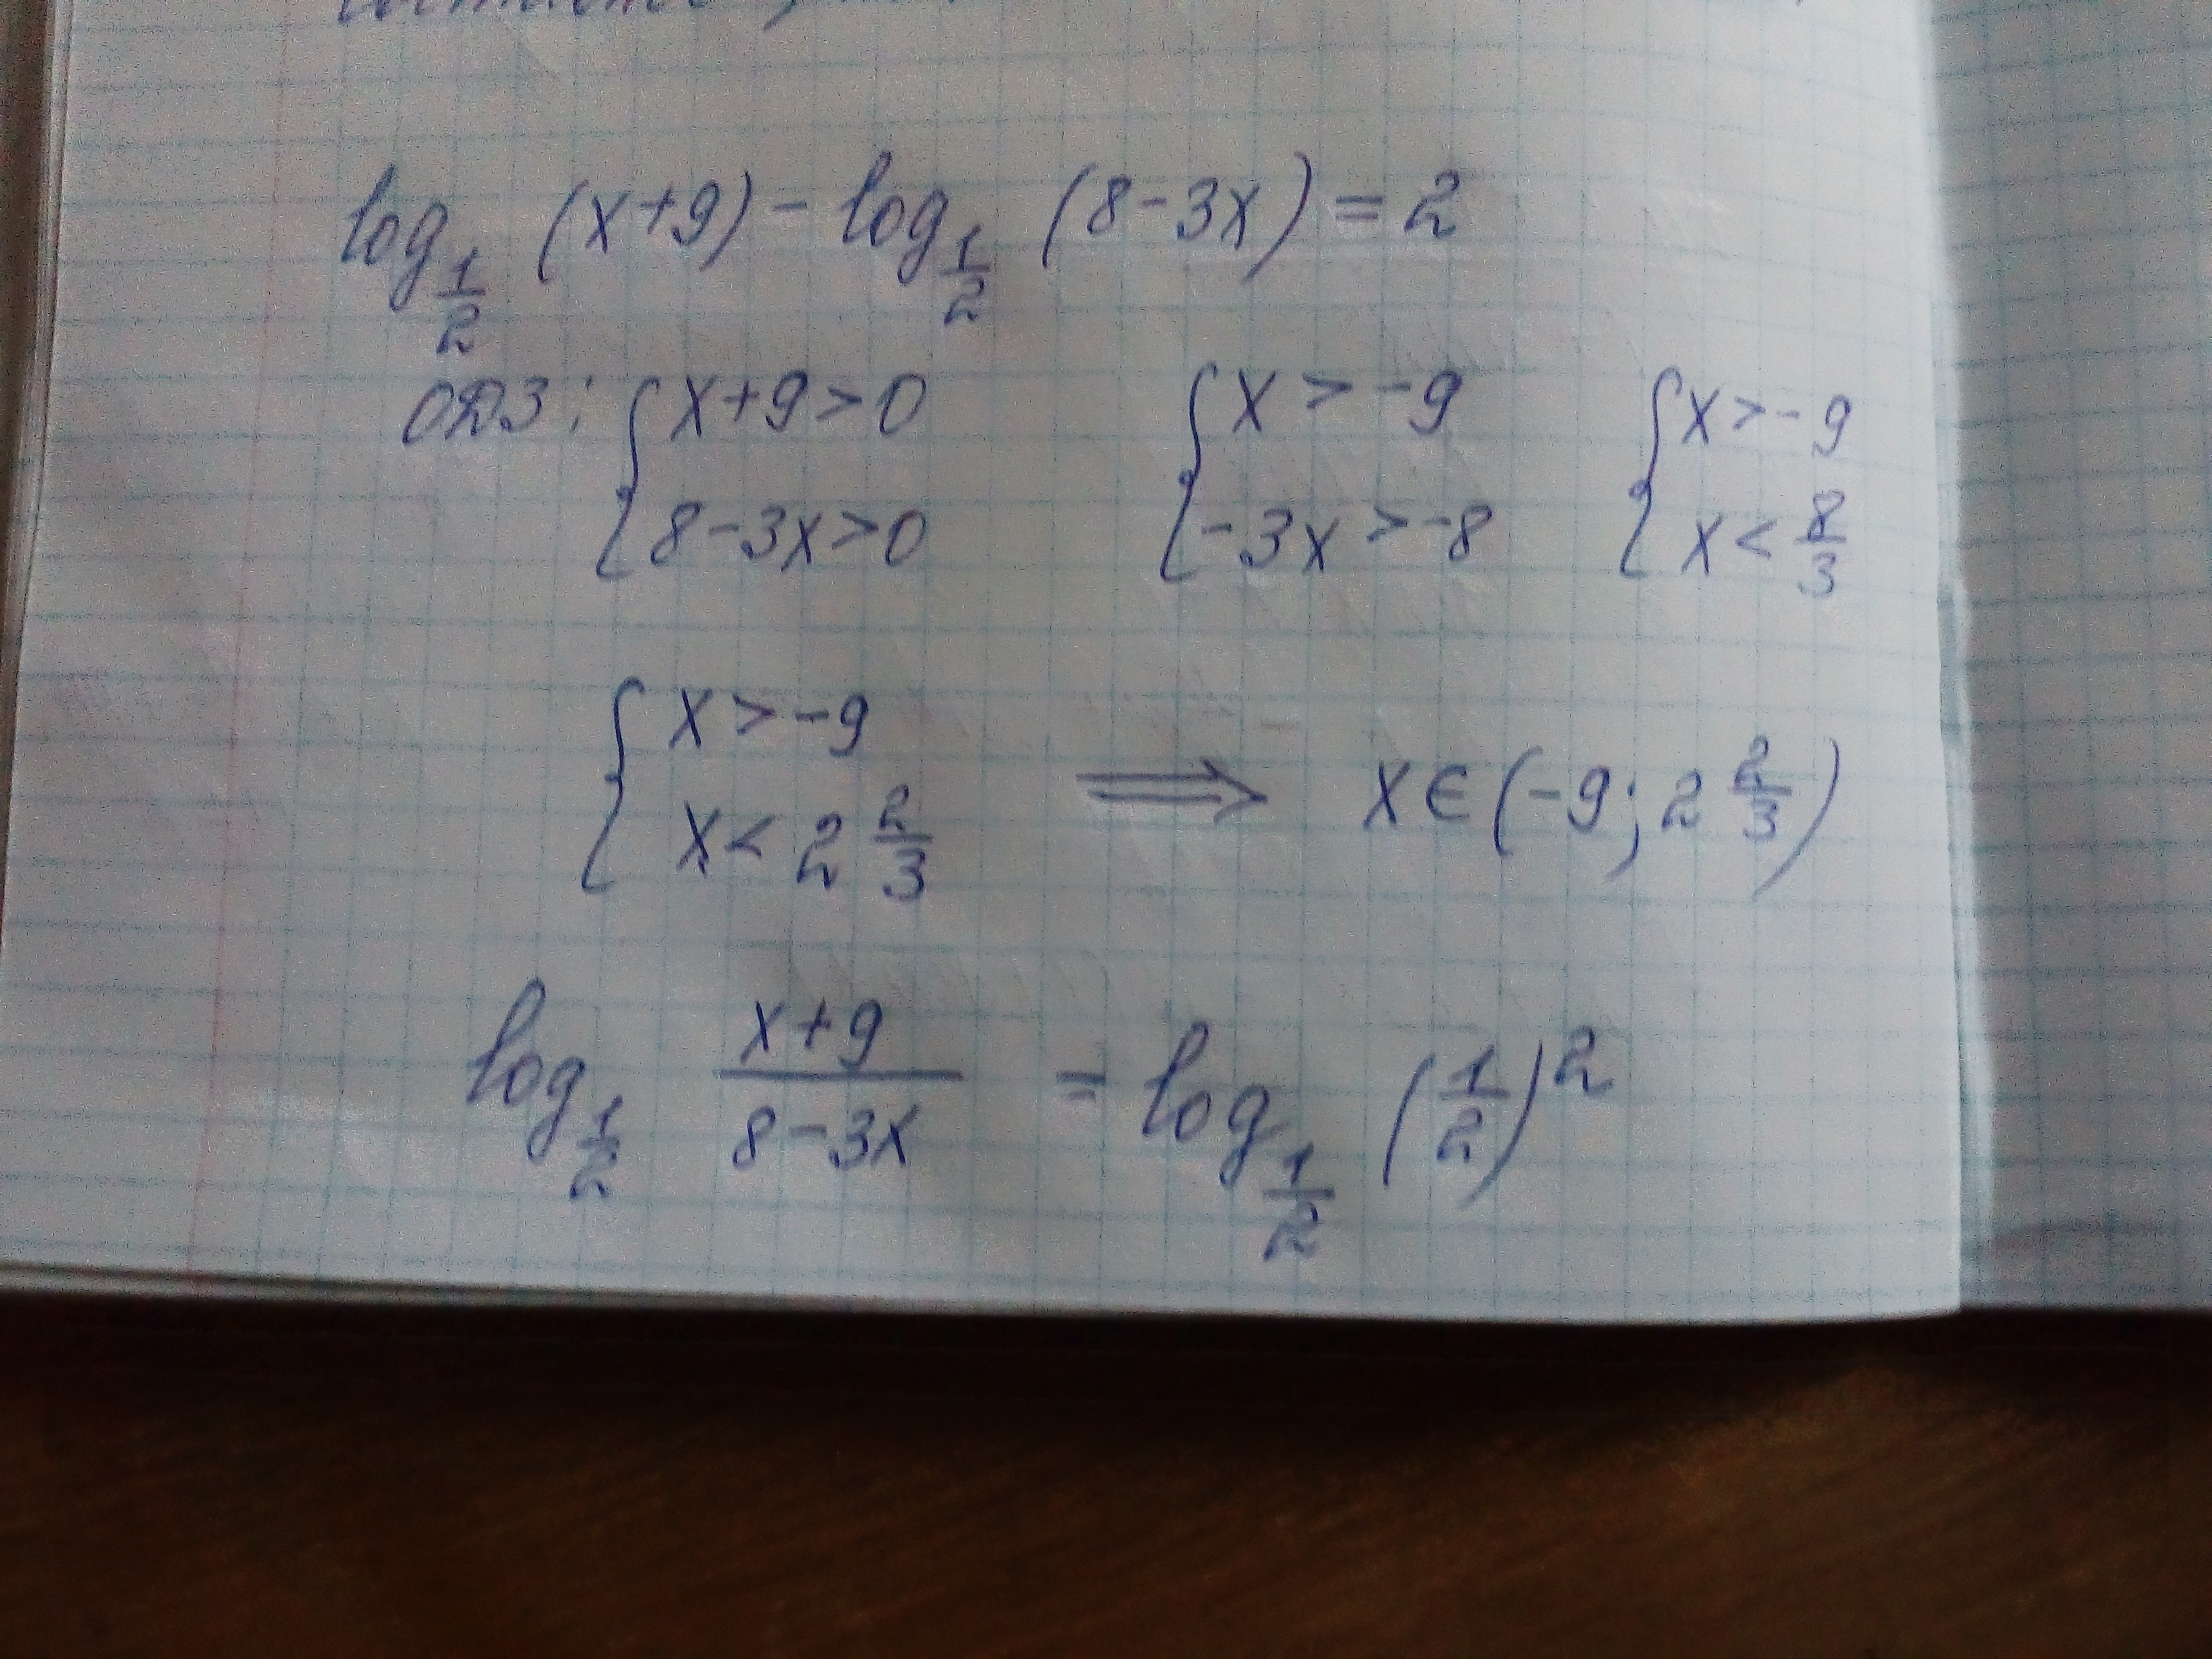 log_{1/2} (x+9) - log_{1/2} (8-3x) = 2
ОДЗ: { x+9>0 { x > -9 { x > -9
8-3x>0 -3x > -8 x < 8/3
{ x > -9
x < 2 2/3 ⟹ x ∈ (-9; 2 2/3)
log_{1/2} (x+9)/(8-3x) = log_{1/2} (1/2)^2